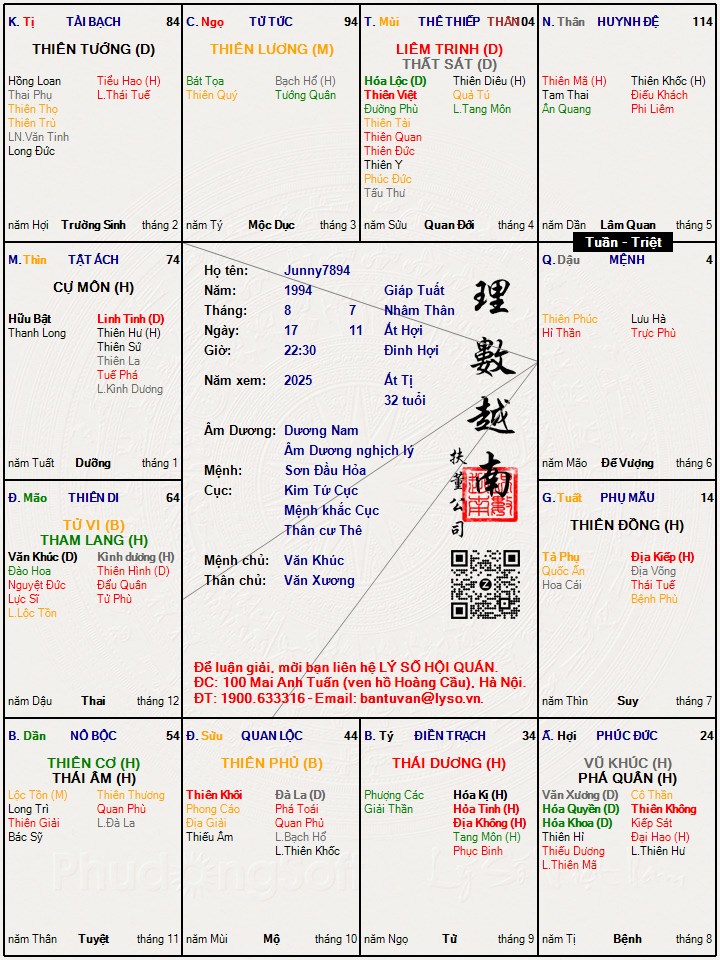 K. Tị TÀI BẠCH 84
THIÊN TƯỚNG (D)
Hồng Loan Tiểu Hao (H)
Thai Phụ L.Thái Tuế
Thiên Thọ
Thiên Trù
LN.Văn Tinh
Long Đức
năm Hợi Trường Sinh tháng 2
C. Ngọ TỬ TỨC 94
THIÊN LƯƠNG (M)
Bát Tọa Bạch Hổ (H)
Thiên Quý Tướng Quân
năm Tý Mộc Dục tháng 3
T. Mùi THÊ THIẾP THÂN 104
LIÊM TRINH (D)
THẤT SÁT (D)
Hóa Lộc (D) Thiên Diêu (H)
Thiên Việt Quả Tú
Đường Phù L.Tang Môn
Thiên Tài
Thiên Quan
Thiên Đức
Thiên Y
Phúc Đức
Tấu Thư
năm Sửu Quan Đới tháng 4
N. Thân HUYNH ĐỆ 114
Thiên Mã (H) Thiên Khốc (H)
Tam Thai Điếu Khách
Ân Quang Phi Liêm
năm Dần Lâm Quan tháng 5
Tuần - Triệt
M. Thìn TẬT ÁCH 74
CỰ MÔN (H)
Hữu Bật Linh Tinh (D)
Thanh Long Thiên Hư (H)
Thiên Sứ
Thiên La
Tuế Phá
L.Kình Dương
năm Tuất Dưỡng tháng 1
Họ tên: Junny7894
Năm: 1994 Giáp Tuất
Tháng: 8 7 Nhâm Thân
Ngày: 17 11 Ất Hợi
Giờ: 22:30 Đinh Hợi
Năm xem: 2025 Ất Tị
32 tuổi
Âm Dương: Dương Nam
Âm Dương nghịch lý
Mệnh: Sơn Đầu Hỏa
Cục: Kim Tứ Cục
Mệnh khắc Cục
Thân cư Thê
Mệnh chủ: Văn Khúc
Thân chủ: Văn Xương
理數越南
扶董公司
Z
Để luận giải, mời bạn liên hệ LÝ SỐ HỘI QUÁN.
ĐC: 100 Mai Anh Tuấn (ven hồ Hoàng Cầu), Hà Nội.
ĐT: 1900.633316 - Email: bantuvan@lyso.vn.
Q. Dậu MỆNH 4
Thiên Phúc Lưu Hà
Hỉ Thần Trực Phù
năm Mão Đế Vượng tháng 6
Đ. Mão THIÊN DI 64
TỬ VI (B)
THAM LANG (H)
Văn Khúc (D) Kình dương (H)
Đào Hoa Thiên Hình (D)
Nguyệt Đức Đẩu Quân
Lực Sĩ Tử Phù
L.Lộc Tồn
năm Dậu Thai tháng 12
G. Tuất PHỤ MẪU 14
THIÊN ĐỒNG (H)
Tả Phụ Địa Kiếp (H)
Quốc Ấn Địa Võng
Hoa Cái Thái Tuế
Bệnh Phù
năm Thìn Suy tháng 7
B. Dần NÔ BỘC 54
THIÊN CƠ (H)
THÁI ÂM (H)
Lộc Tồn (M) Thiên Thương
Long Trì Quan Phù
Thiên Giải L.Đà La
Bác Sỹ
năm Thân Tuyệt tháng 11
Đ. Sửu QUAN LỘC 44
THIÊN PHỦ (B)
Thiên Khôi Đà La (D)
Phong Cáo Phá Toái
Địa Giải Quan Phủ
Thiếu Âm L.Bạch Hổ
L.Thiên Khốc
năm Mùi Mộ tháng 10
B. Tý ĐIỀN TRẠCH 34
THÁI DƯƠNG (H)
Phượng Các Hóa Kị (H)
Giải Thần Hỏa Tinh (H)
Địa Không (H)
Tang Môn (H)
Phục Binh
năm Ngọ Tử tháng 9
Ấ. Hợi PHÚC ĐỨC 24
VŨ KHÚC (H)
PHÁ QUÂN (H)
Văn Xương (D) Cô Thần
Hóa Quyền (D) Thiên Không
Hóa Khoa (D) Kiếp Sát
Thiên Hỉ Đại Hao (H)
Thiếu Dương L.Thiên Hư
L.Thiên Mã
năm Tị Bệnh tháng 8